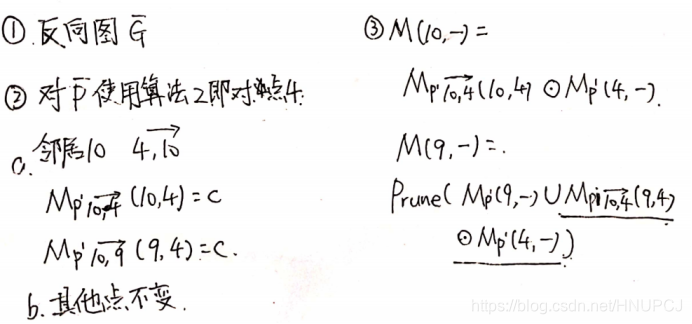 ① 反向图 G̅
② 对 P̅ 使用算法2即对点4.
a. 邻居10 4,10→
Mp'10,4→ (10,4) = C
Mp'10,9→ (9,4) = C.
b. 其他点不变.
③ M(10,-) =
Mp'10,4→(10,4) ⊙ Mp'(4,-).
M(9,-) =.
Prune( Mp'(9,-) ∪ Mp'10,4→(9,4)
⊙ Mp'(4,-) )
https://blog.csdn.net/HNUPCJ